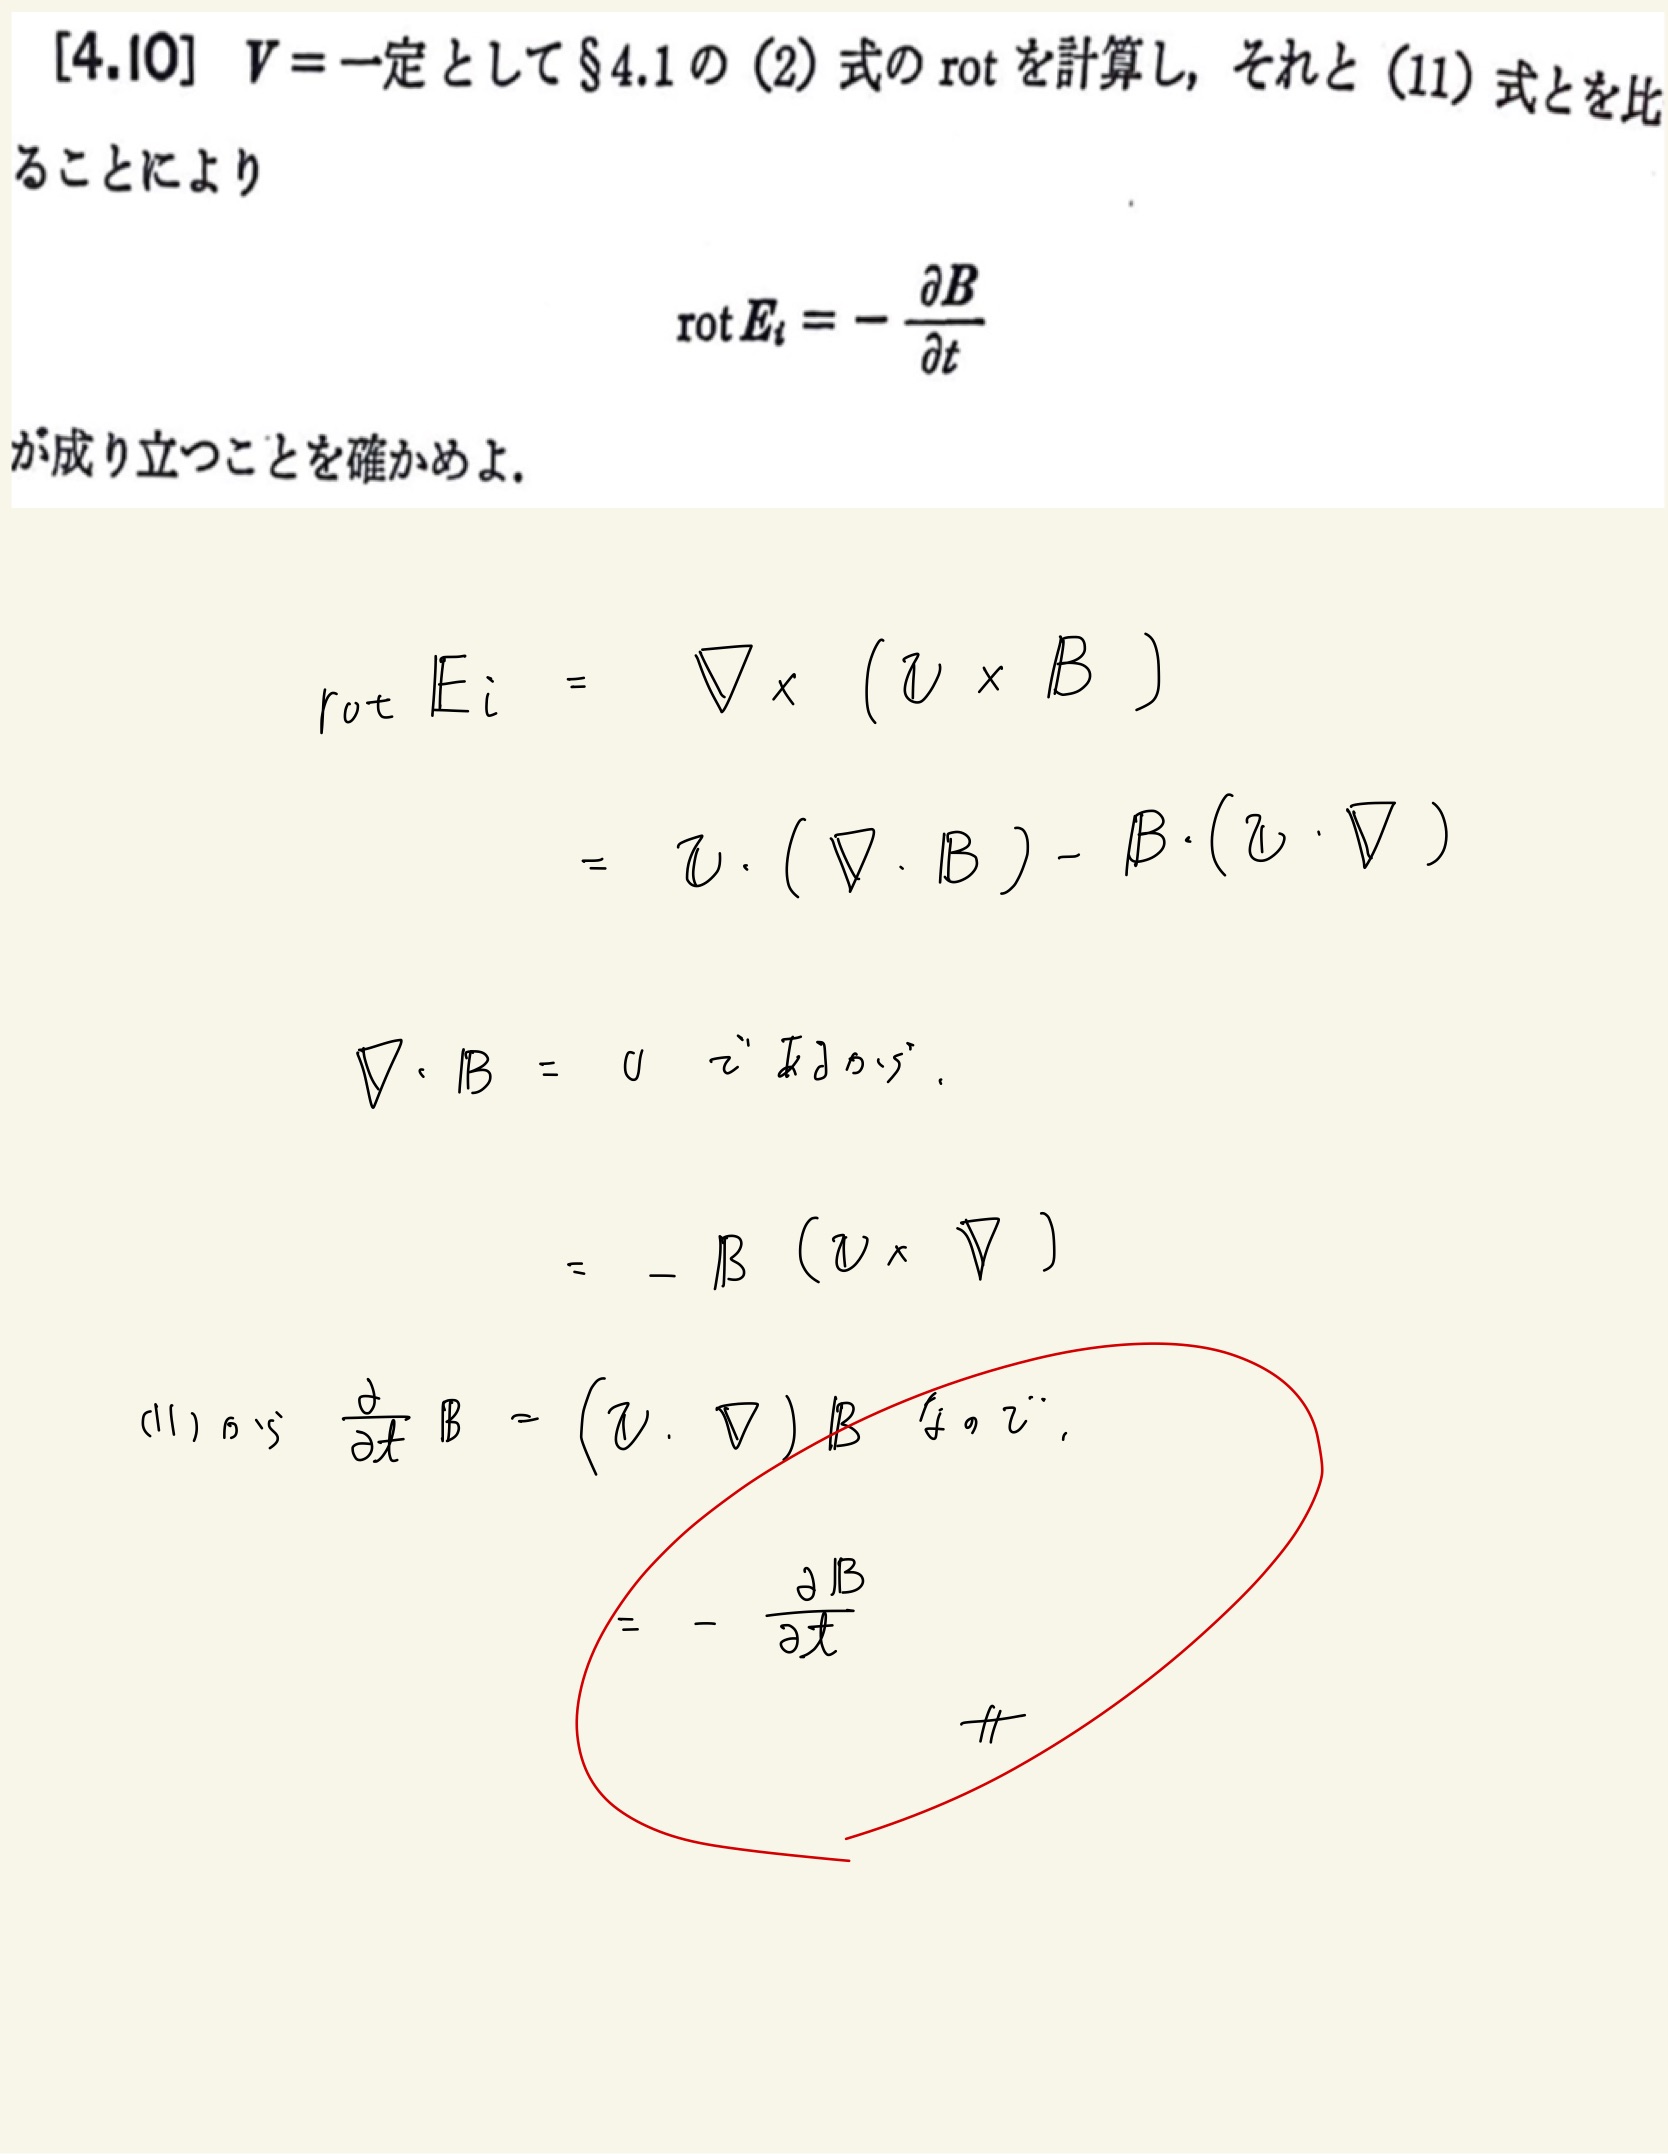 [4.10] V = 一定 として §4.1 の (2) 式の rot を計算し, それと (11) 式とを比
ることにより
rot Eᵢ = − ∂B/∂t
が成り立つことを確かめよ.
rot Eᵢ = ∇ × (v × B)
= v · (∇ · B) − B · (v · ∇)
∇ · B = 0 であるから.
= − B (v × ∇)
(11)から ∂/∂t B = (v · ∇) B なので,
= − ∂B/∂t
#